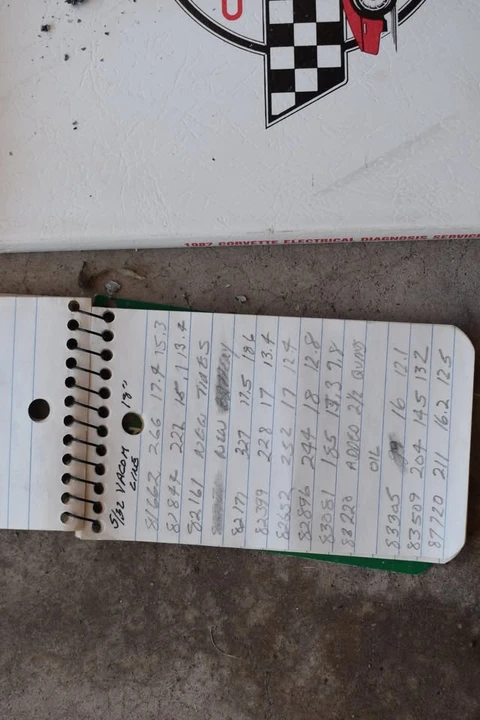 1987 CORVETTE ELECTRICAL DIAGNOSIS SERVICE
5/32 VACOM 18"
LINE
81662 266 17.4 15.3
81844 222 13.4
82161 NEW TIRES
NEW
82171 327 17.5 18.6
82399 228 17 13.4
82652 252 17 12.4
82896 244 18 12.8
83081 185 13.3 9.8
83220 ADDED 2½
OIL
83305 16 12.1
83509 204 14.5 13.2
87720 211 16.2 12.5